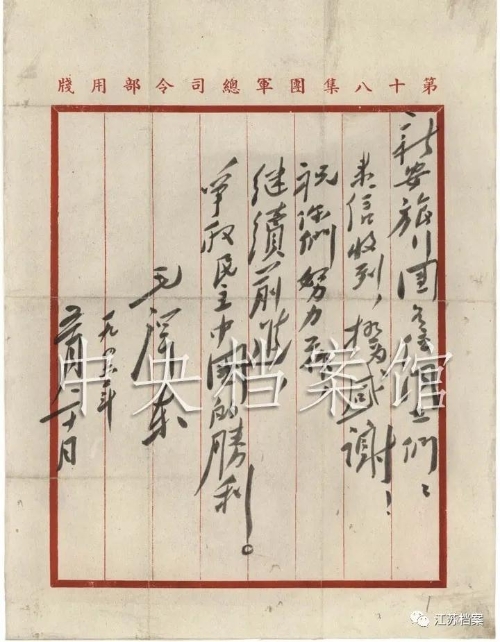 第十八集團軍總司令部用牋
新安旅行團 們：
来信收到，极为感谢！
祝你们努力
继續前进，
爭取民主中國的勝利。
毛澤东
一九四六年
五月二十日
中央档案馆
江苏档案